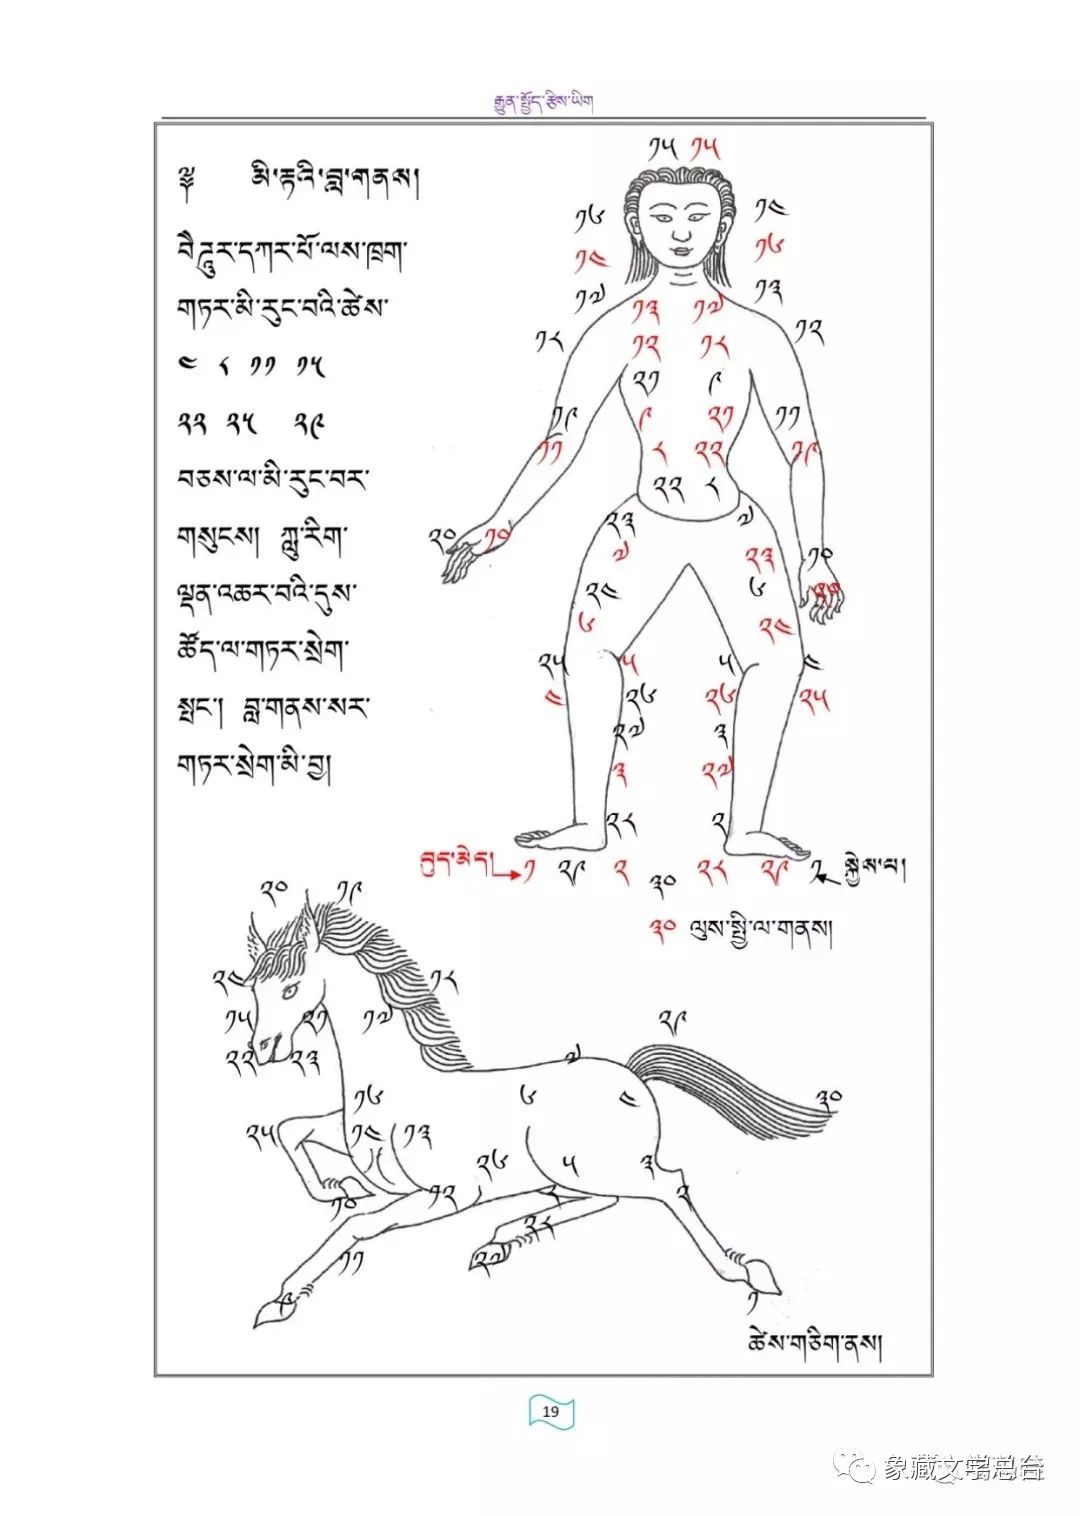 རྒྱུན་སྤྱོད་རྩིས་ཡིག
༈ མི་རྟའི་བླ་གནས།
བཻཌཱུར་དཀར་པོ་ལས་ཁྲག་
གཏར་མི་རུང་བའི་ཚེས་
༤ ༨ ༡༡ ༡༥
༢༢ ༢༥ ༢༩
བཅས་ལ་མི་རུང་བར་
གསུངས། ཀླུ་རིག་
ལྡན་འཆར་བའི་དུས་
ཚོད་ལ་གཏར་སྲེག་
སྤང་། བླ་གནས་སར་
གཏར་སྲེག་མི་བྱ།
༡༥ ༡༥
༡༦ ༡༤
༡༤ ༡༦
༡༧ ༡༣
༡༣ ༡༧
༡༨ ༡༢
༡༢ ༡༨
༢༡ ༩
༡༩ ༩ ༢༡ ༡༡
༡༡ ༨ ༢༢ ༡༩
༢༢ ༨
༢༣ ༧
༢༠ ༡༠ ༧ ༢༣ ༡༠
༢༤ ༦ ༢༠
༦ ༢༤
༢༥ ༥ ༥ ༤
༤ ༢༦ ༢༦ ༢༥
༢༧ ༣
༣ ༢༧
༢༨ ༢
བུད་མེད། ༡ ༢༩ ༢ ༣༠ ༢༨ ༢༩ ༡ སྐྱེས་པ།
༣༠ ལུས་སྤྱི་ལ་གནས།
༢༠ ༡༩
༢༤ ༡༨
༡༥ ༢༡ ༡༧ ༢༩
༢༢ ༢༣ ༧
༡༦ ༦ ༤ ༣༠
༢༥ ༡༤ ༡༣
༢༦ ༥ ༣
༡༠ ༡༢ ༨ ༢
༢༨
༡༡ ༢༧
༩ ༡
ཚེས་གཅིག་ནས།
19